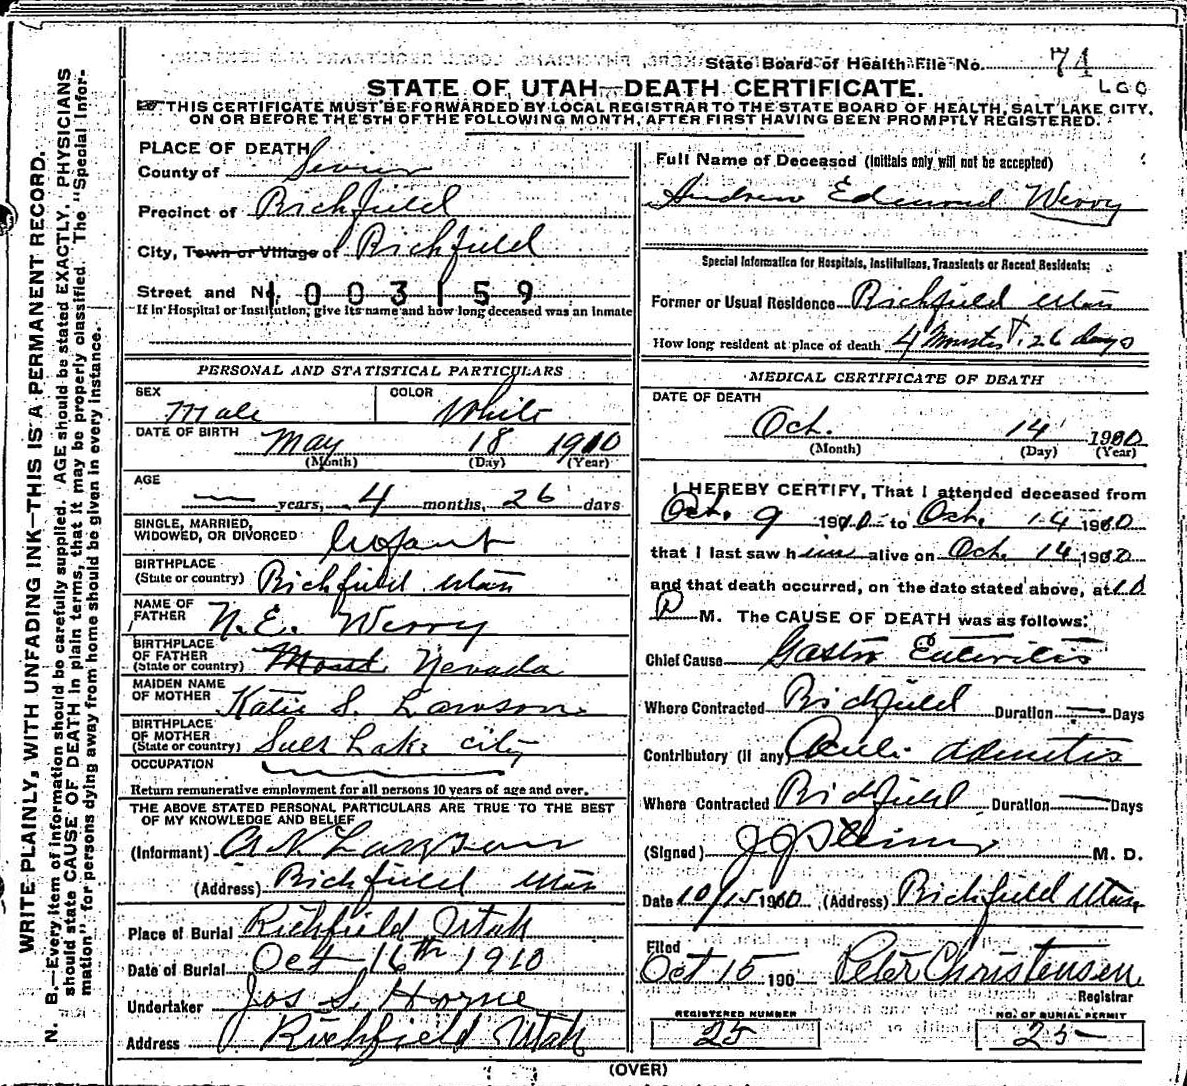 State Board of Health File No. 74
STATE OF UTAH—DEATH CERTIFICATE.
THIS CERTIFICATE MUST BE FORWARDED BY LOCAL REGISTRAR TO THE STATE BOARD OF HEALTH, SALT LAKE CITY,
ON OR BEFORE THE 5TH OF THE FOLLOWING MONTH, AFTER FIRST HAVING BEEN PROMPTLY REGISTERED.
WRITE PLAINLY, WITH UNFADING INK—THIS IS A PERMANENT RECORD.
N. B.—Every item of information should be carefully supplied. AGE should be stated EXACTLY. PHYSICIANS
should state CAUSE OF DEATH in plain terms, that it may be properly classified. The "Special Infor-
mation" for persons dying away from home should be given in every instance.
PLACE OF DEATH
County of Sevier
Precinct of Richfield
City, Town or Village of Richfield
Street and No. 1003159
If in Hospital or Institution, give its name and how long deceased was an inmate
PERSONAL AND STATISTICAL PARTICULARS
SEX Male
COLOR White
DATE OF BIRTH May 18 1910
(Month) (Day) (Year)
AGE
— years, 4 months, 26 days
SINGLE, MARRIED,
WIDOWED, OR DIVORCED Infant
BIRTHPLACE
(State or country) Richfield Utah
NAME OF
FATHER N. E. Werry
BIRTHPLACE
OF FATHER
(State or country) Nevada
MAIDEN NAME
OF MOTHER Katie S. Lawson
BIRTHPLACE
OF MOTHER
(State or country) Salt Lake City
OCCUPATION
Return remunerative employment for all persons 10 years of age and over.
THE ABOVE STATED PERSONAL PARTICULARS ARE TRUE TO THE BEST
OF MY KNOWLEDGE AND BELIEF
(Informant)
(Address) Richfield Utah
Place of Burial Richfield Utah
Date of Burial Oct 16th 1910
Undertaker Jos S. Horne
Address Richfield Utah
Full Name of Deceased (Initials only will not be accepted)
Andrew Edmond Werry
Special Information for Hospitals, Institutions, Transients or Recent Residents:
Former or Usual Residence Richfield Utah
How long resident at place of death 4 Months + 26 days
MEDICAL CERTIFICATE OF DEATH
DATE OF DEATH
Oct. 14 1910
(Month) (Day) (Year)
I HEREBY CERTIFY, That I attended deceased from
Oct. 9 1910 to Oct. 14 1910
that I last saw him alive on Oct. 14 1910
and that death occurred, on the date stated above, at 10
P M. The CAUSE OF DEATH was as follows:
Chief Cause Gastro Enteritis
Where Contracted Richfield Duration — Days
Contributory (if any)
Where Contracted Richfield Duration — Days
(Signed) M. D.
Date 10/15 1910 (Address) Richfield Utah
Filed
Oct 15 190 Peter Christensen
Registrar
REGISTERED NUMBER
25
NO. OF BURIAL PERMIT
25
(OVER)